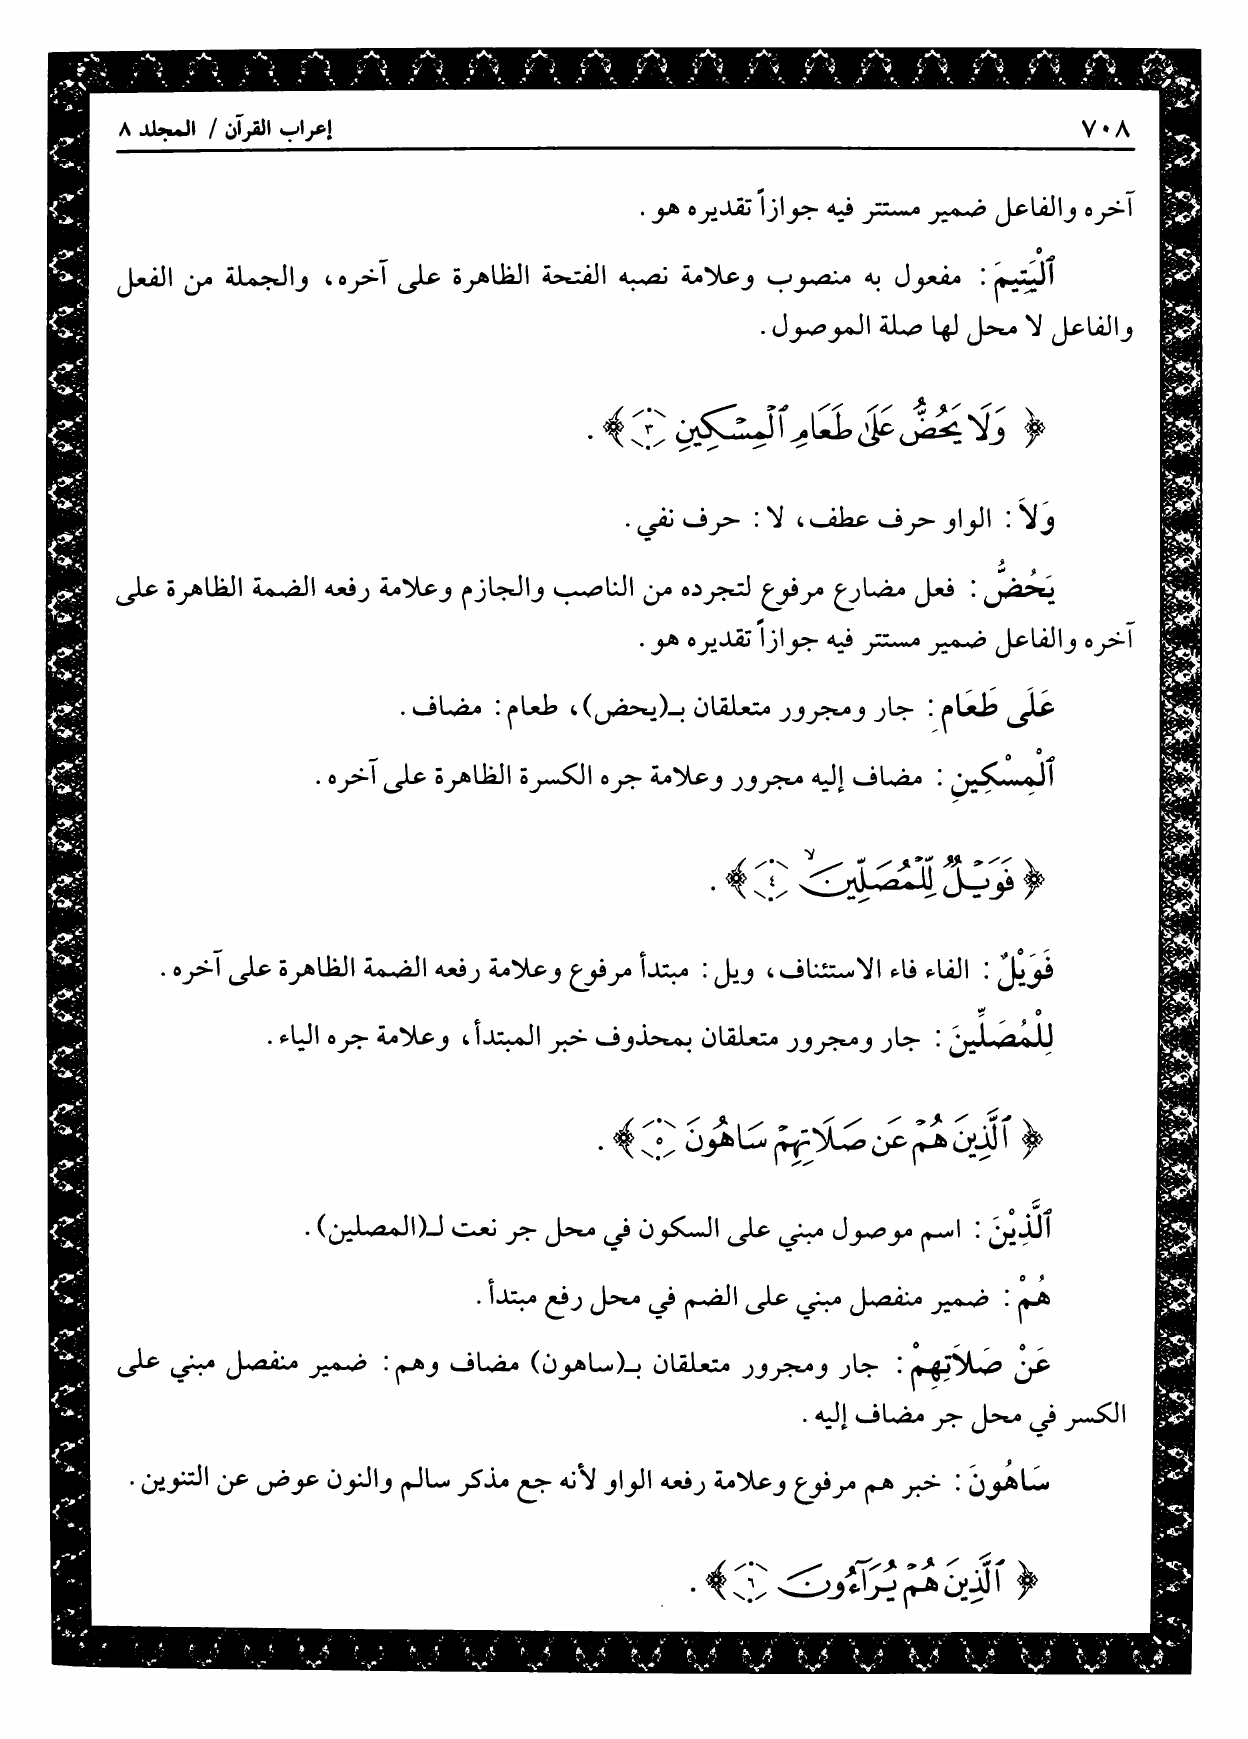 ٧٠٨
إعراب القرآن / المجلد ٨
آخره والفاعل ضمير مستتر فيه جوازاً تقديره هو .
ٱلْيَتِيمَ : مفعول به منصوب وعلامة نصبه الفتحة الظاهرة على آخره، والجملة من الفعل
والفاعل لا محل لها صلة الموصول .
﴿ وَلَا يَحُضُّ عَلَىٰ طَعَامِ ٱلْمِسْكِينِ ٣ ﴾ .
وَلاَ : الواو حرف عطف، لا : حرف نفي .
يَحُضُّ : فعل مضارع مرفوع لتجرده من الناصب والجازم وعلامة رفعه الضمة الظاهرة على
آخره والفاعل ضمير مستتر فيه جوازاً تقديره هو .
عَلَى طَعَامِ : جار ومجرور متعلقان بـ(يحض)، طعام : مضاف .
ٱلْمِسْكِينِ : مضاف إليه مجرور وعلامة جره الكسرة الظاهرة على آخره .
﴿ فَوَيْلٌ لِّلْمُصَلِّينَ ۙ ٤ ﴾ .
فَوَيْلٌ : الفاء فاء الاستئناف، ويل : مبتدأ مرفوع وعلامة رفعه الضمة الظاهرة على آخره .
لِلْمُصَلِّينَ : جار ومجرور متعلقان بمحذوف خبر المبتدأ، وعلامة جره الياء .
﴿ ٱلَّذِينَ هُمْ عَن صَلَاتِهِمْ سَاهُونَ ٥ ﴾ .
ٱلَّذِيْنَ : اسم موصول مبني على السكون في محل جر نعت لـ(المصلين) .
هُمْ : ضمير منفصل مبني على الضم في محل رفع مبتدأ .
عَنْ صَلاَتِهِمْ : جار ومجرور متعلقان بـ(ساهون) مضاف وهم : ضمير منفصل مبني على
الكسر في محل جر مضاف إليه .
سَاهُونَ : خبر هم مرفوع وعلامة رفعه الواو لأنه جع مذكر سالم والنون عوض عن التنوين .
﴿ ٱلَّذِينَ هُمْ يُرَآءُونَ ٦ ﴾ .